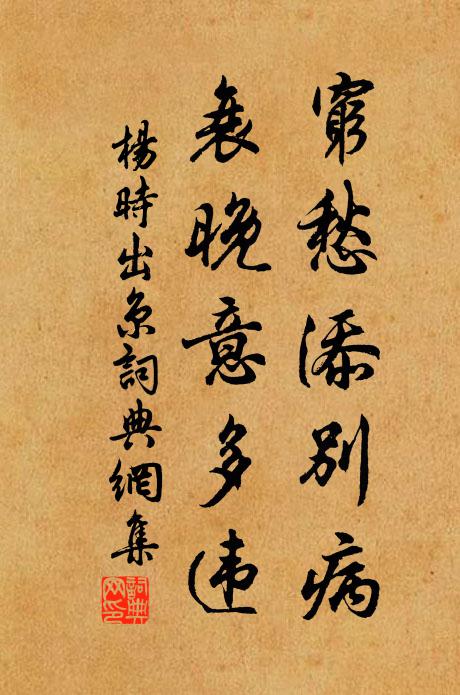 窮愁添別病
衰晚意多违
楊時出京詞典網集
詞典网印